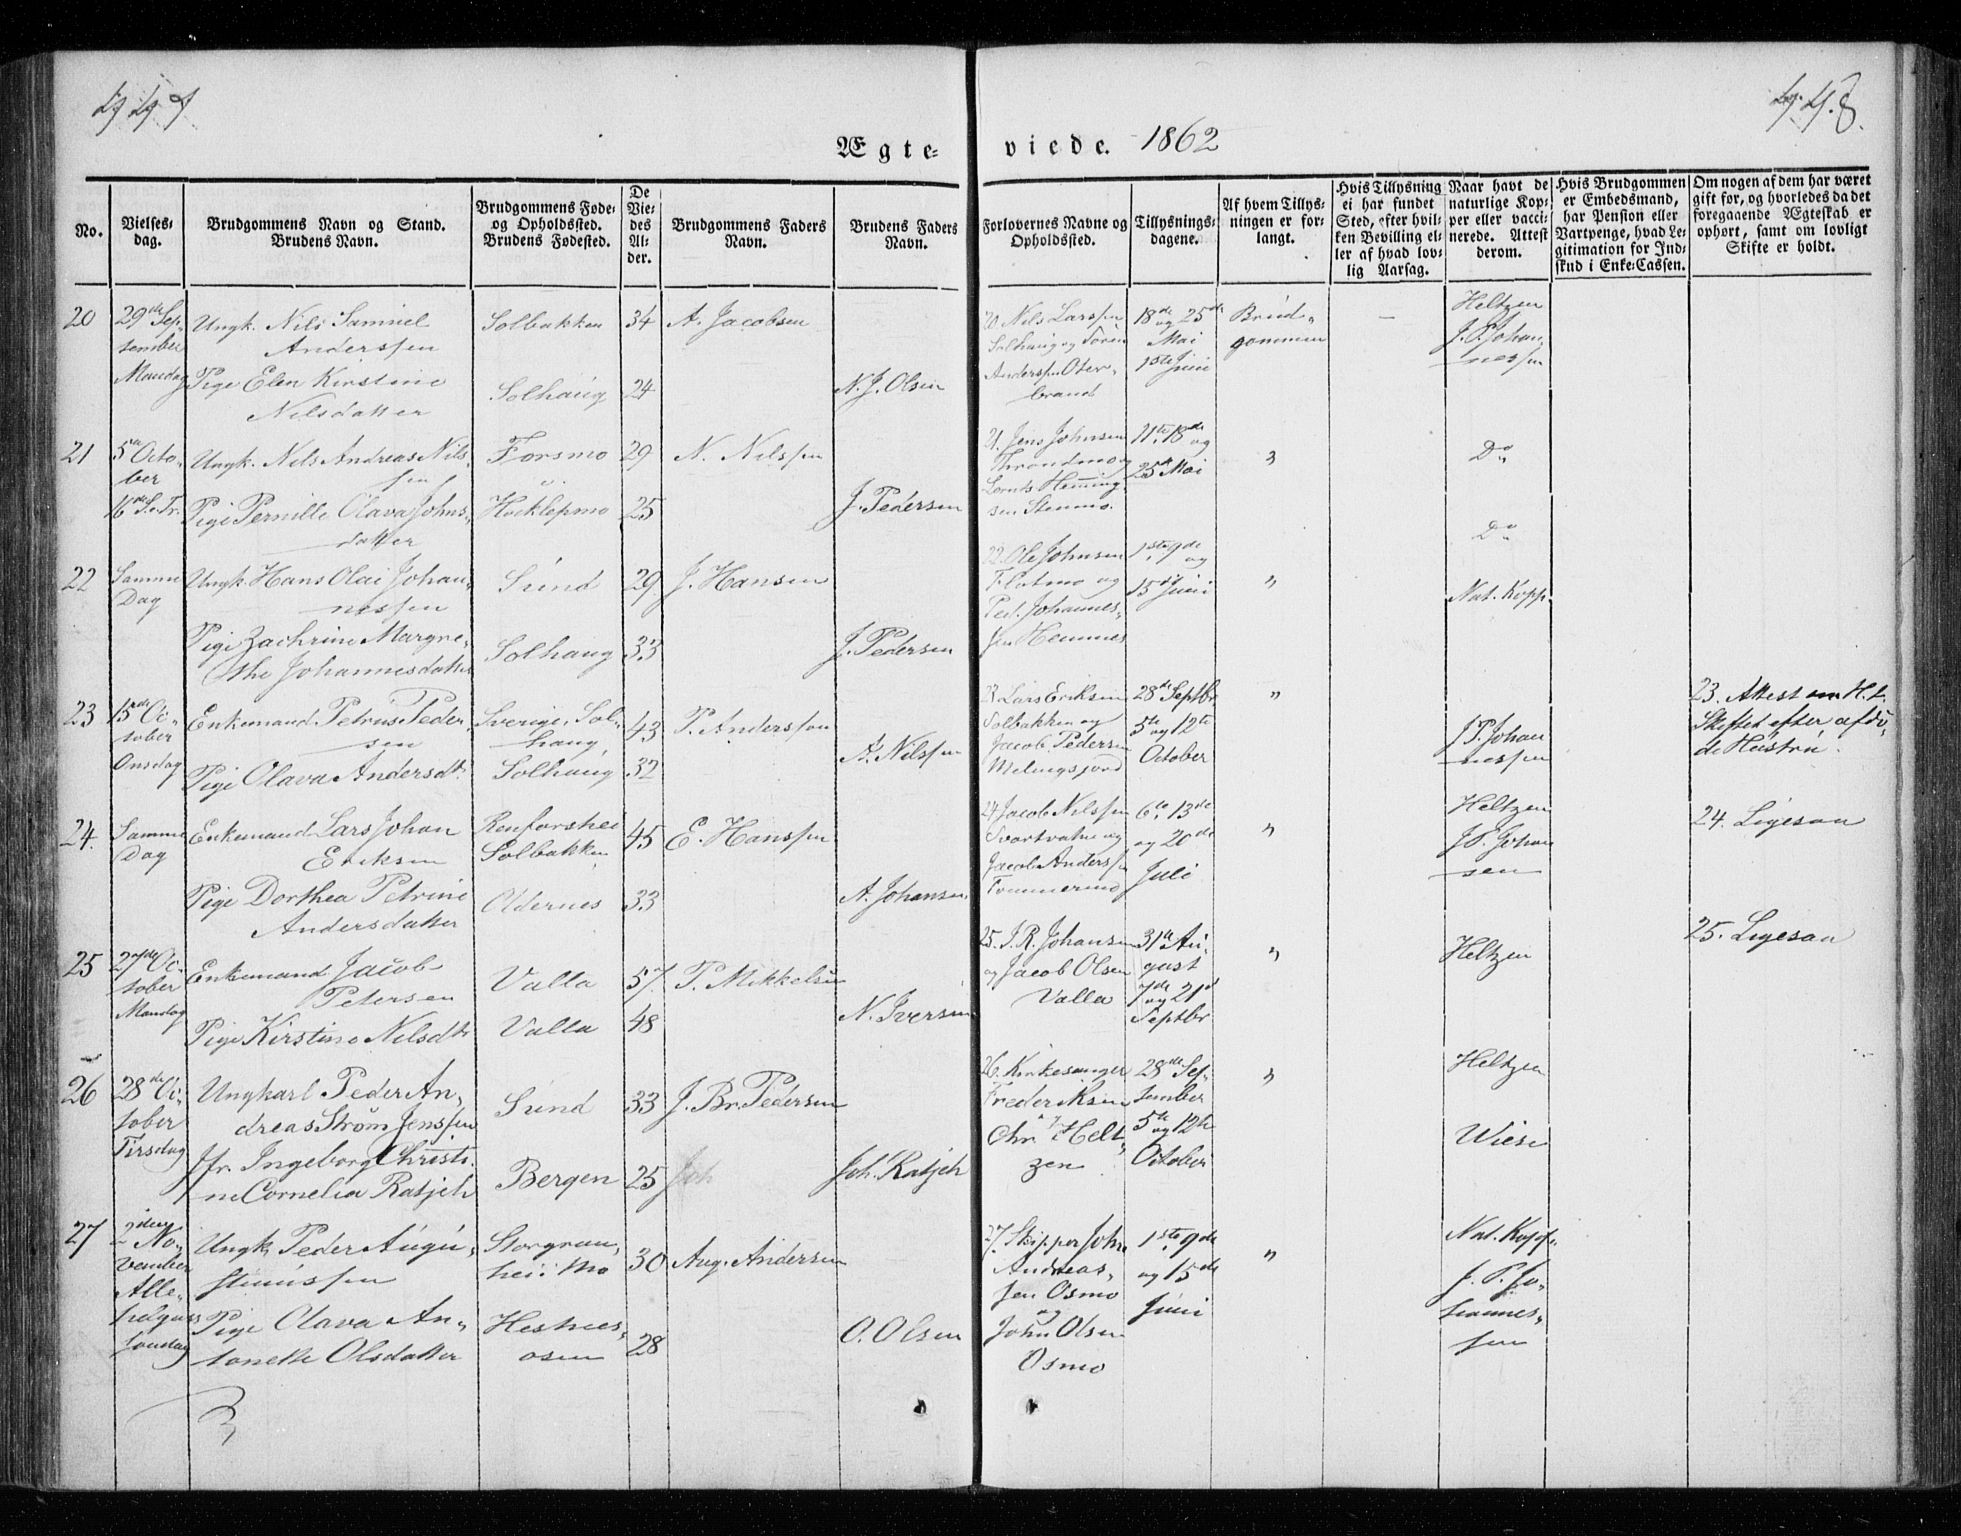 Ægte-
viede. 1862
No.
Vielses-
dag.
Brudgommens Navn og Stand.
Brudens Navn.
Brudgommens Føde-
og Opholdssted.
Brudens Fødested.
De
Vie-
des
Al-
der.
Brudgommens Faders
Navn.
Brudens Faders
Navn.
Forlovernes Navne og
Opholdssted.
Tillysnings-
dagene.
Af hvem Tillys-
ningen er for-
langt.
Hvis Tillysning
ei har fundet
Sted, efter hvil-
ken Bevilling el-
ler af hvad lov-
lig Aarsag.
Naar havt de
naturlige Kop-
per eller vacci-
nerede. Attest
derom.
Hvis Brudgommen
er Embedsmand,
har Pension eller
Vartpenge, hvad Le-
gitimation for Ind-
skud i Enke-Cassen.
Om nogen af dem har været
gift før, og hvorledes da det
foregaaende Ægteskab er
ophørt, samt om lovligt
Skifte er holdt.
20
29de Sep-
tember
Mandag
Ungk. Nils Samuel
Anderssen
Pige Elen Kirstine
Nilsdatter
Solbakken
Solhaug
34
24
A. Jacobsen
N. J. Olsen
20 Nils Larssen
Solhaug og Søren
Anderssen Oter-
brand
18de og 25de
Mai
1ste Juni
Brud-
gommen
—
Heltzen
J. P. Johan-
nessen
21
5te Octo-
ber
16de S. e. Tr.
Ungk. Nils Andreas Nils-
sen
Pige Pernille Olava Johns-
datter
Forsmo
29
25
N. Nilssen
J. Pedersen
21. Jens Johnsen
Throndmo og
Lornts Henning-
sen Stenmo.
11te 18de og
25de Mai
"
Do
Do
22
Samme
Dag
Ungk. Hans Olai Johan-
nessen
Pige Zachrine Margre-
the Johannesdatter
Sund
Solhaug
29
33
J. Hansen
J. Pedersen
22. Ole Johnsen
Flotmo og
Ped. Johannes-
sen Hemnes
1ste 9de og
15de Juni
"
Nat. Kopp.
23
15de Oc-
tober
Onsdag
Enkemand Petrus Peder-
sen
Pige Olava Andersdtr
Sverige, Sol-
haug,
Solhaug
43
32
P. Anderssen
A. Nilssen
23 Lars Eriksen
Solbakken og
Jacob Pedersen
28de Septbr
5te og 12te
October
"
J. P. Johan
nessen
23. Attest om H. t.
Skiftet efter afdø-
de Hustru.
24.
Samme
Dag
Enkemand Lars Johan
Eriksen
Pige Dorthea Petrine
Andersdatter
Renforshei
Solbakken
Oldernes
45
33
E. Hanssen
A. Johansen.
24 Jacob Nilssen
Svartvatne og
Jacob Anderssen
6te 13de
og 20de
Juli
"
Heltzen
J. P. Johan
sen
24. Ligesaa
25
27de Oc-
tober
Mandag
Enkemand Jacob
Petersen
Pige Kirstine Nilsdtr
Valla
Valla
57.
48
P. Mikkelsen
N. Iversen
25. J. R. Johansen
og Jacob Olsen
Valla
31te Au-
gust
7de og 21de
Septbr
"
Heltzen
25. Ligesaa
26
28de Oc-
tober
Tirsdag
Ungkarl Peder An-
dreas Strøm Jenssen
Jfr. Ingeborg Christi-
ne Cornelia Ratjeh
Sund
Bergen
33
25
J. Br. Pedersen
Joh. Ratjeh
26. Kirkesanger
Frederiksen
og
Chr. Helt-
zen
28de Sep-
tember
5te og 12te
October
"
Heltzen
Wiese
27
2den No-
vember
Alle-
helgens
søndag
Ungk. Peder Augu-
stinussen
Pige Olava An-
tonette Olsdatter
Storgran-
hei i Mo
Hestnes-
osen
30
28
Aug. Andersen
O. Olsen
27 Skipper John
Andreas-
sen Osmo
og
John Olsen
Osmo
1ste 9de
og 15de
Juni
"
Nat. Kopp.
J. P. Jo-
hannes-
sen